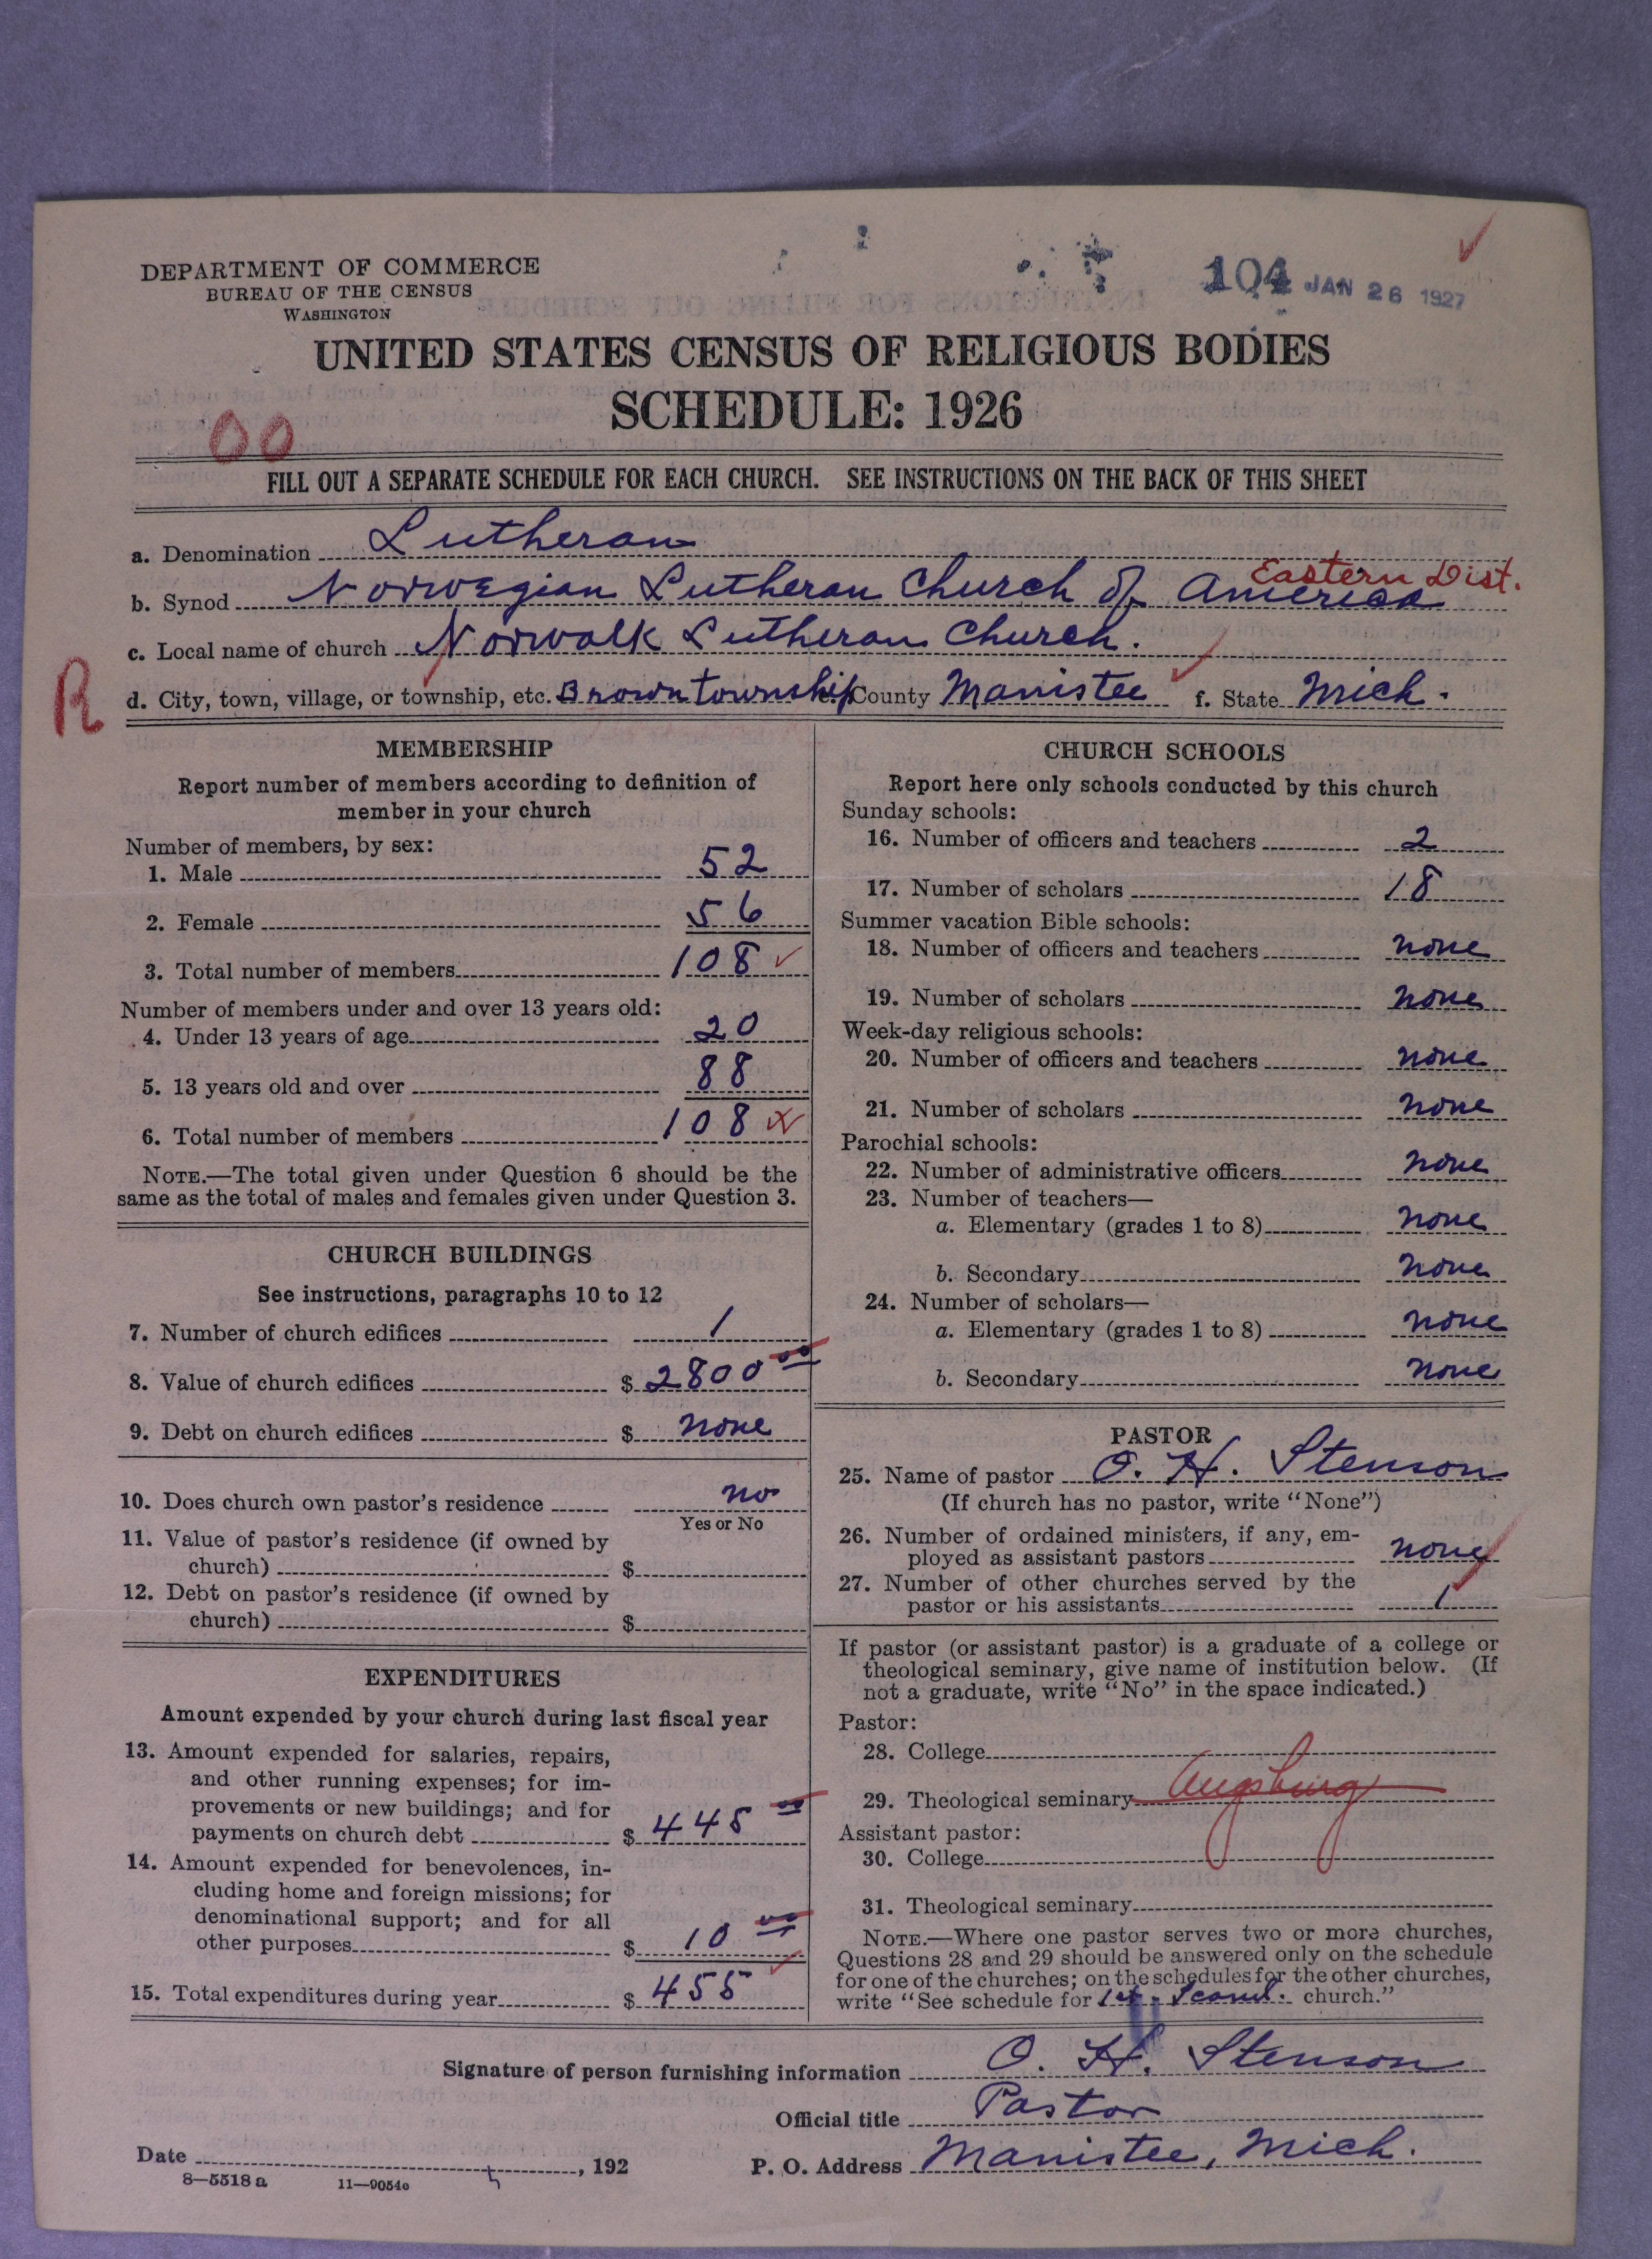 DEPARTMENT OF COMMERCE
BUREAU OF THE CENSUS
WASHINGTON
104 JAN 26 1927
UNITED STATES CENSUS OF RELIGIOUS BODIES
SCHEDULE: 1926
00
FILL OUT A SEPARATE SCHEDULE FOR EACH CHURCH. SEE INSTRUCTIONS ON THE BACK OF THIS SHEET
a. Denomination Lutheran
Eastern Dist.
b. Synod Norwegian Lutheran Church of America
c. Local name of church Norwalk Lutheran Church.
R
d. City, town, village, or township, etc. Brown township e. County Manistee f. State Mich.
MEMBERSHIP
Report number of members according to definition of
member in your church
Number of members, by sex:
1. Male 52
2. Female 56
3. Total number of members 108
Number of members under and over 13 years old:
4. Under 13 years of age 20
5. 13 years old and over 88
6. Total number of members 108
NOTE.—The total given under Question 6 should be the
same as the total of males and females given under Question 3.
CHURCH BUILDINGS
See instructions, paragraphs 10 to 12
7. Number of church edifices 1
8. Value of church edifices $ 2800 00
9. Debt on church edifices $ none
10. Does church own pastor's residence no
Yes or No
11. Value of pastor's residence (if owned by
church) $
12. Debt on pastor's residence (if owned by
church) $
EXPENDITURES
Amount expended by your church during last fiscal year
13. Amount expended for salaries, repairs,
and other running expenses; for im-
provements or new buildings; and for
payments on church debt $ 445 00
14. Amount expended for benevolences, in-
cluding home and foreign missions; for
denominational support; and for all
other purposes $ 10 00
15. Total expenditures during year $ 455
CHURCH SCHOOLS
Report here only schools conducted by this church
Sunday schools:
16. Number of officers and teachers 2
17. Number of scholars 18
Summer vacation Bible schools:
18. Number of officers and teachers none
19. Number of scholars none
Week-day religious schools:
20. Number of officers and teachers none
21. Number of scholars none
Parochial schools:
22. Number of administrative officers none
23. Number of teachers—
a. Elementary (grades 1 to 8) none
b. Secondary none
24. Number of scholars—
a. Elementary (grades 1 to 8) none
b. Secondary none
PASTOR
25. Name of pastor O. H. Stenson
(If church has no pastor, write "None")
26. Number of ordained ministers, if any, em-
ployed as assistant pastors none
27. Number of other churches served by the
pastor or his assistants 1
If pastor (or assistant pastor) is a graduate of a college or
theological seminary, give name of institution below. (If
not a graduate, write "No" in the space indicated.)
Pastor:
28. College
29. Theological seminary Augsburg
Assistant pastor:
30. College
31. Theological seminary
NOTE.—Where one pastor serves two or more churches,
Questions 28 and 29 should be answered only on the schedule
for one of the churches; on the schedules for the other churches,
write "See schedule for 1st Scand. church."
Signature of person furnishing information O. H. Stenson
Official title Pastor
Date , 192
P. O. Address Manistee, Mich.
8—5518 a 11—9054c